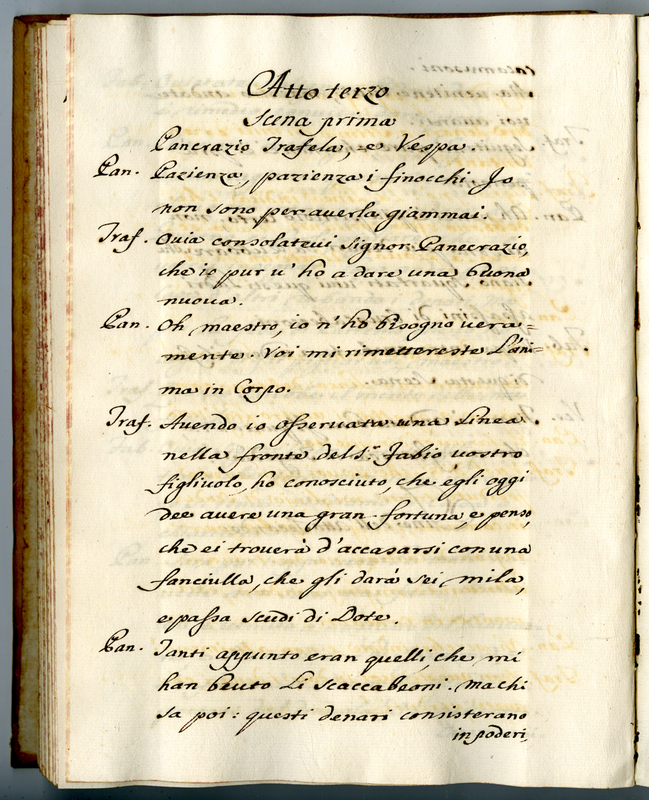 Atto terzo
Scena prima
Pancrazio Trafela, e Vespa.
Pan. Pazienza, pazienza i finocchi. Io
non sono per averla giammai.
Traf. Ovia consolatevi Signor Panecrazio,
che io pur v'ho a dare una buona
nuova.
Pan. Oh maestro, io n'ho bisogno vera=
mente. Voi mi rimettereste L'ani=
ma in Corpo.
Traf. Avendo io osservata una Linea
nella fronte del S.r Fabio vostro
figlivolo, ho conosciuto, che egli oggi
dee avere una gran fortuna, e penso,
che ei troverà d'accasarsi con una
fanciulla, che gli darà sei mila,
e passa scudi di Dote.
Pan. Tanti appunto eran quelli, che mi
han bevto Li scaccabeoni. Ma chi
sa poi: questi denari consisterano
in poderi,